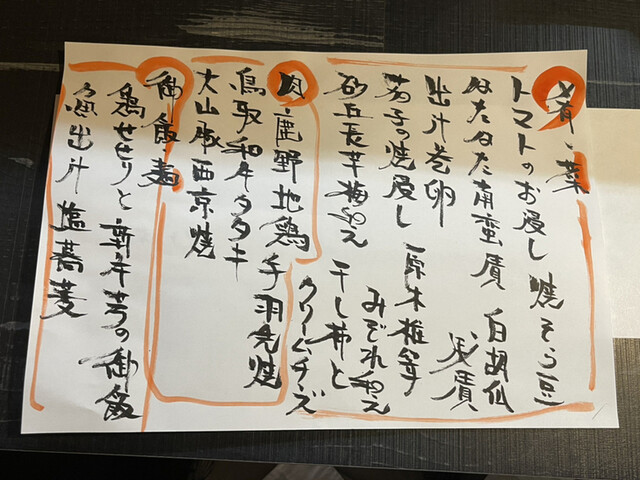 肴・菜
トマトのお浸し 焼そら豆
ねたねた南蛮漬 白胡瓜浅漬
出汁巻卵
茄子の焼浸し 原木椎茸みぞれ和え
砂丘長芋梅和え 干し柿とクリームチーズ
肉・鹿野地鶏手羽先焼
鳥取和牛タタキ
大山豚西京焼
御飯・麺
鶏せせりと新生姜の御飯
魚出汁 塩蕎麦